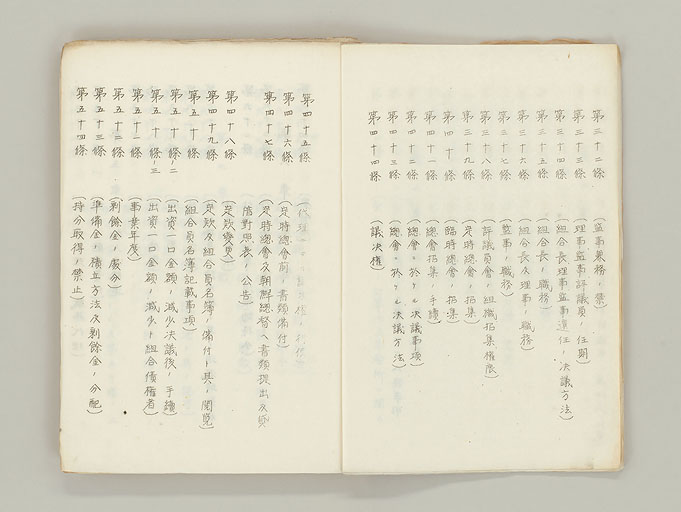 第三十二條 (監事兼務ノ禁)
第三十三條 (理事監事評議員ノ任期)
第三十四條 (組合長理事監事選任ノ決議方法)
第三十五條 (組合長ノ職務)
第三十六條 (組合長及理事ノ職務)
第三十七條 (監事ノ職務)
第三十八條 (評議員會ノ組織招集權限)
第三十九條 (定時總會ノ招集)
第四十條 (臨時總會ノ招集)
第四十一條 (總會招集ノ手續)
第四十二條 (總會ニ於ケル決議事項)
第四十三條 (總會ニ於ケル決議方法)
第四十四條 (議決權)
第四十五條
第四十六條 (定時總會前ノ書類備付)
第四十七條 (定時總會及朝鮮總督ヘ書類提出及貸
借對照表ノ公告)
第四十八條 (定款變更)
第四十九條 (定款及組合員名簿ノ備付ト其ノ閲覧)
第五十條 (組合員名簿記載事項)
第五十條ノ二 (出資一口金額ノ減少決議後ノ手續)
第五十條ノ三 (出資一口金額ノ減少ト組合債權者)
第五十一條 (事業年度)
第五十二條 (剰餘金ノ處分)
第五十三條 (準備金ノ積立方法及剰餘金ノ分配)
第五十四條 (持分取得ノ禁止)